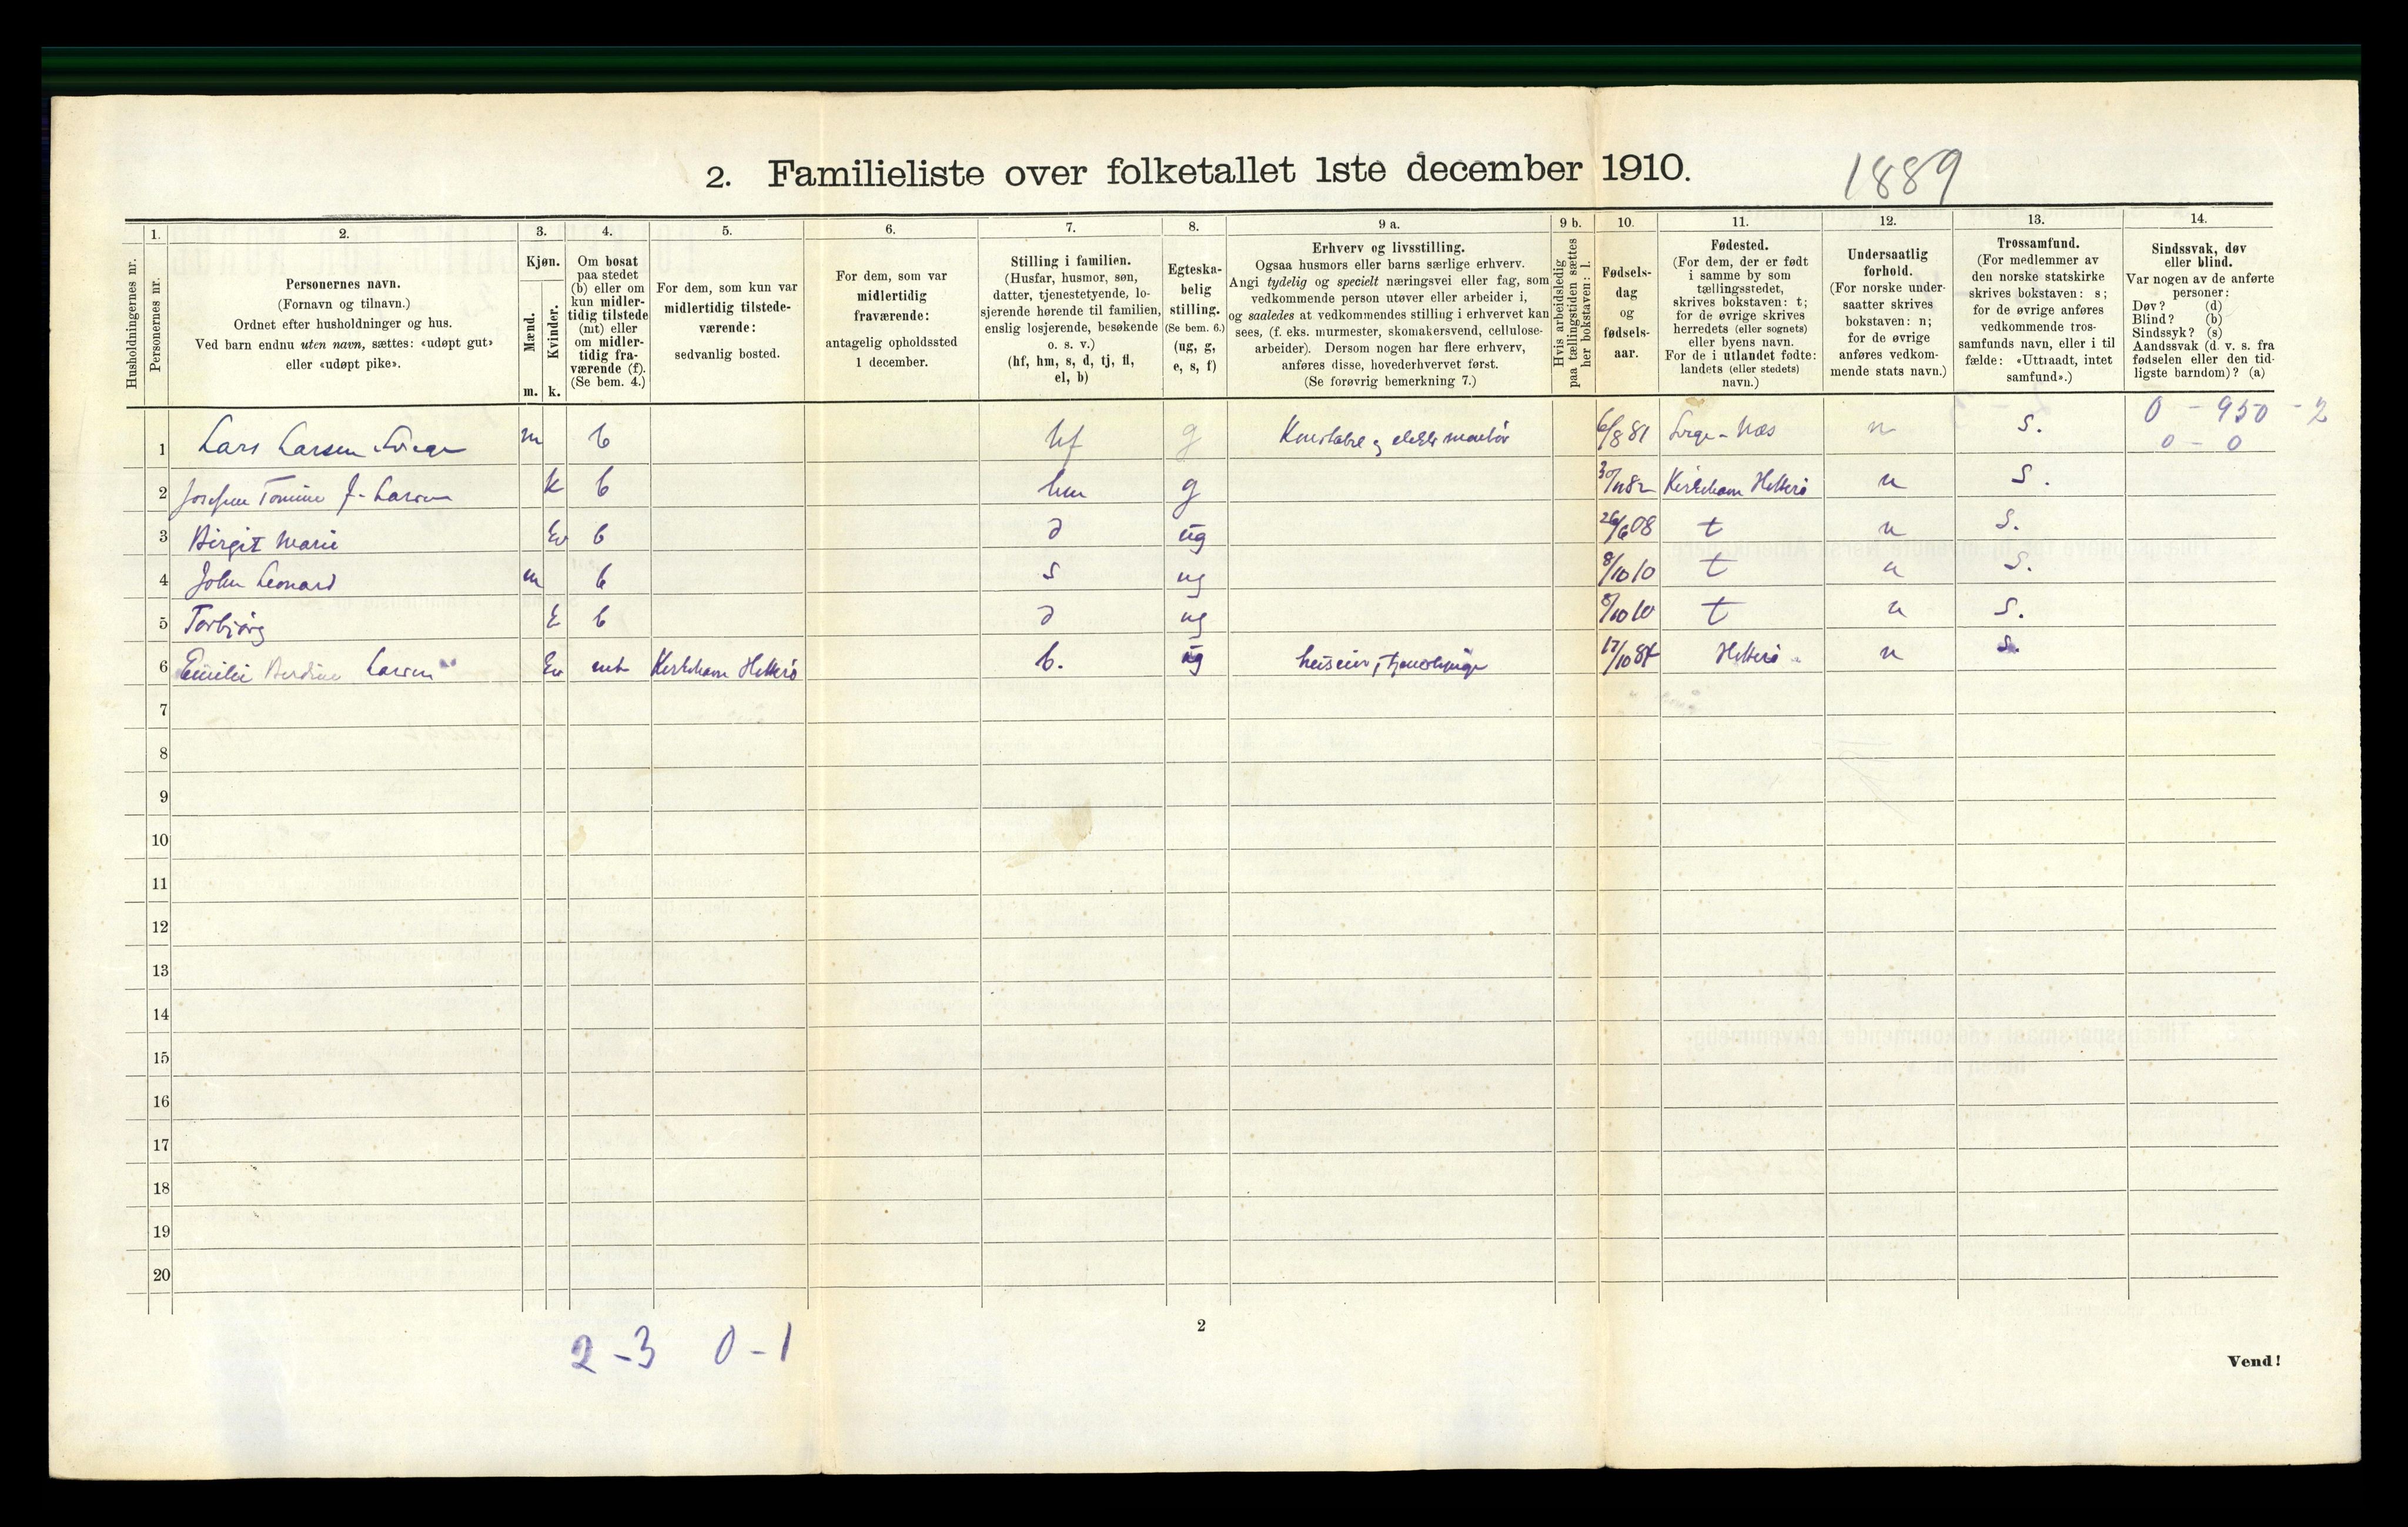 2. Familieliste over folketallet 1ste december 1910.
1889
Husholdningernes nr.
1.
Personernes nr.
2.
Personernes navn.
(Fornavn og tilnavn.)
Ordnet efter husholdninger og hus.
Ved barn endnu uten navn, sættes: «udøpt gut»
eller «udøpt pike».
3.
Kjøn.
Mænd.
Kvinder.
m. k.
4.
Om bosat
paa stedet
(b) eller om
kun midler-
tidig tilstede
(mt) eller
om midler-
tidig fra-
værende (f).
(Se bem. 4.)
5.
For dem, som kun var
midlertidig tilstede-
værende:
sedvanlig bosted.
6.
For dem, som var
midlertidig
fraværende:
antagelig opholdssted
1 december.
7.
Stilling i familien.
(Husfar, husmor, søn,
datter, tjenestetyende, lo-
sjerende hørende til familien,
enslig losjerende, besøkende
o. s. v.)
(hf, hm, s, d, tj, fl,
el, b)
8.
Egteska-
belig
stilling.
(Se bem. 6.)
(ug, g,
e, s, f)
9 a.
Erhverv og livsstilling.
Ogsaa husmors eller barns særlige erhverv.
Angi tydelig og specielt næringsvei eller fag, som
vedkommende person utøver eller arbeider i,
og saaledes at vedkommendes stilling i erhvervet kan
sees, (f. eks. murmester, skomakersvend, cellulose-
arbeider). Dersom nogen har flere erhverv,
anføres disse, hovederhvervet først.
(Se forøvrig bemerkning 7.)
9 b.
Hvis arbeidsledig
paa tællingstiden sættes
her bokstaven: l.
10.
Fødsels-
dag
og
fødsels-
aar.
11.
Fødested.
(For dem, der er født
i samme by som
tællingsstedet,
skrives bokstaven: t;
for de øvrige skrives
herredets (eller sognets)
eller byens navn.
For de i utlandet fødte:
landets (eller stedets)
navn.)
12.
Undersaatlig
forhold.
(For norske under-
saatter skrives
bokstaven: n;
for de øvrige
anføres vedkom-
mende stats navn.)
13.
Trossamfund.
(For medlemmer av
den norske statskirke
skrives bokstaven: s;
for de øvrige anføres
vedkommende tros-
samfunds navn, eller i til
fælde: «Uttraadt, intet
samfund».)
14.
Sindssvak, døv
eller blind.
Var nogen av de anførte
personer:
Døv? (d)
Blind? (b)
Sindssyk? (s)
Aandssvak (d. v. s. fra
fødselen eller den tid-
ligste barndom)? (a)
0 - 950 - 2
0 - 0
1 Lars Larsen m b hf g og elektr montør 6/8 81 n s.
2 Larsen k b hm g 30/11 82 Kirkehavn Hitterø n s.
3 Birgit Marie k b d ug 26/6 08 t n s.
4 John Leonard m b s ug 8/10 10 t n s.
5 Torbjørg k b d ug 8/10 10 t n s.
6 Emilie Berdine Larsen k mt Kirkehavn Hitterø b. ug Hitterø n s.
7
8
9
10
11
12
13
14
15
16
17
18
19
20
2
2 - 3 0 - 1
Vend!